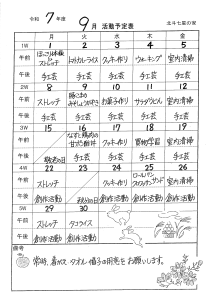 令和7年度 9月 活動予定表 北斗七星の家
1W 1 2 3 4 5
午前 ストレッチ トマトカレーライス クッキー作り ウォーキング 室内清掃
午後 手工芸 手工芸 手工芸 手工芸 手工芸
2W 8 9 10 11 12
午前 ストレッチ お菓子作り サラダうどん 室内清掃
午後 手工芸 手工芸 手工芸 手工芸 手工芸
3W 15 16 17 18 19
午前 敬老の日 なすと豚肉の クッキー作り 室内清掃
午後 手工芸 手工芸 手工芸 手工芸
4W 22 23 24 25 26
午前 ストレッチ 秋分の日 クッキー作り ロールパン 室内清掃
午後 創作活動 創作活動 創作活動 創作活動
5W 29 30
午前 ストレッチ タコライス
午後 創作活動 創作活動
備考
常時、着がえ タオル 帽子の用意をお願いします。